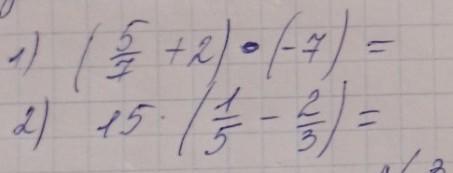 1) (5/7 + 2) • (-7) =
2) 15 · (1/5 - 2/3) =